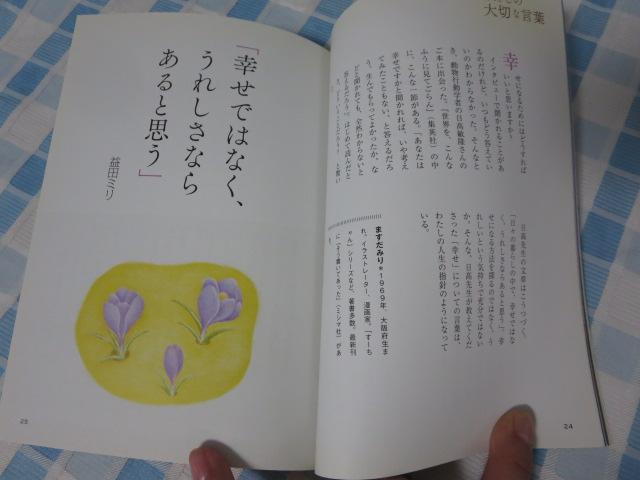 大切な言葉
幸せになるためにはどうすれば
いいと思いますか?
インタビューで聞かれることがあ
るのだけれど、いつもどう答えてい
いのかわからなかった。そんなと
き、動物行動学者の日高敏隆さんの
ご本に出会った。『世界を、こんな
ふうに見てごらん』(集英社)の中
に、こんな一節がある。「あなたは
幸せですかと聞かれれば、いや考え
てみたこともない、と答えるだろ
う。生んでもらってよかったか、な
どと聞かれても、全然わからないと
日高先生の文章はこうつづく。
「日々の暮らしの中で、幸せではな
く、うれしさならあると思う」。幸
せになる方法を探るのではなく、う
れしいという気持ちで充分ではない
か。そんな、日高先生が教えてくだ
さった「幸せ」についての言葉は、
わたしの人生の指針のようになって
いる。
ますだみり●1969年、大阪府生ま
れ。イラストレーター、漫画家。『すーち
ゃん』シリーズなど、著書多数。最新刊
に『そう書いてあった』(ミシマ社)があ
24
「幸せではなく、
うれしさなら
あると思う」
益田ミリ
25